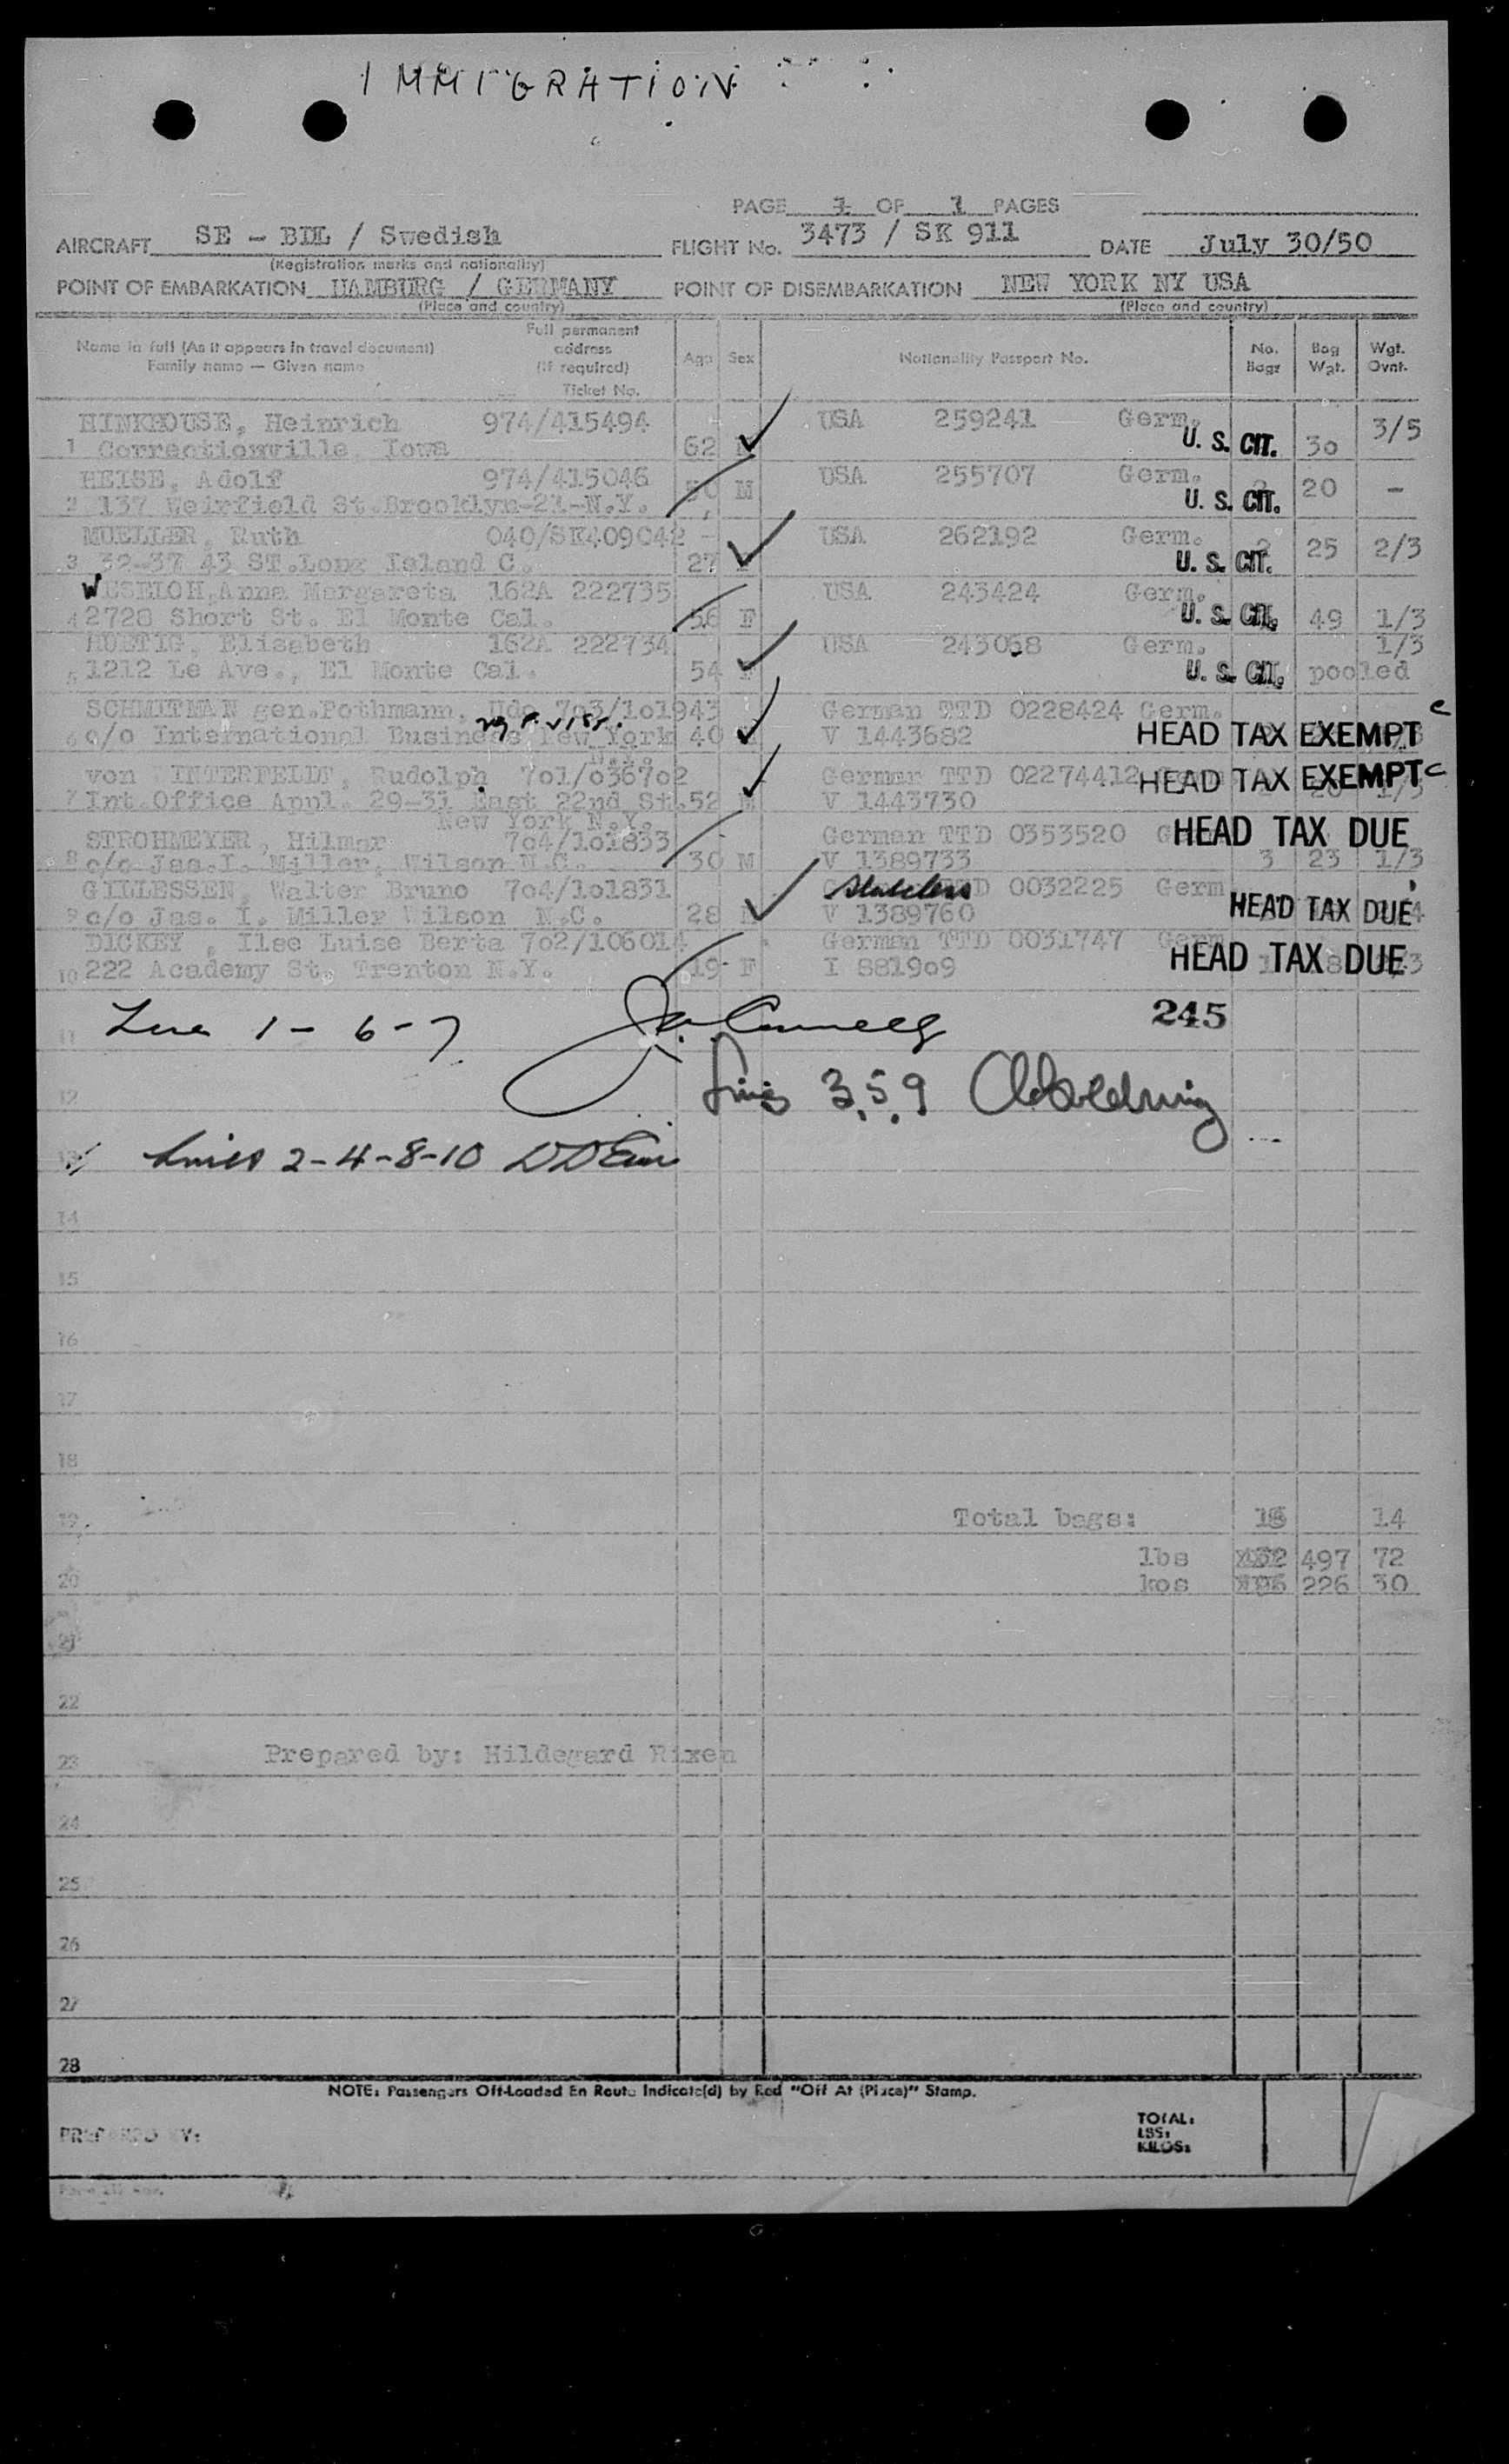 IMMIGRATION
PAGE 1 OF 1 PAGES
AIRCRAFT SE - BDL / Swedish FLIGHT No. 3473 / SK 911 DATE July 30/50
(Registration marks and nationality)
POINT OF EMBARKATION HAMBURG / GERMANY POINT OF DISEMBARKATION NEW YORK NY USA
(Place and country) (Place and country)
Name in full (As it appears in travel document) Family name — Given name Full permanent address (if required) Ticket No. Age Sex Nationality Passport No. No. Bags Bag Wgt. Wgt. Ovnt.
HINKHOUSE, Heinrich 974/415494 USA 259241 Germ. 3/5
1 Correctionville, Iowa 62 U. S. CIT. 30
HEISE, Adolf 974/415046 USA 255707 Germ.
2 137 Weirfield St.Brooklyn-21-N.Y. 50 M U. S. CIT. 20 -
MUELLER, Ruth 040/SK409042 - USA 262192 Germ.
3 32-37 43 ST.Long Island C. 27 U. S. CIT. 25 2/3
WESELOH,Anna Margareta 162A 222735 USA 243424 Germ.
4 2728 Short St. El Monte Cal. 56 F U. S. CIT. 49 1/3
HUETIG, Elisabeth 162A 222734 USA 243068 Germ. 1/3
5 1212 Le Ave., El Monte Cal. 54 F U. S. CIT. pooled
SCHMITMAN gen.Pothmann, Udo 703/101943 German TTD 0228424 Germ.
6 c/o International Business New York 40 V 1443682 HEAD TAX EXEMPT c
N.Y.
von WINTERFELDT, Rudolph 701/036702 German TTD 02274412 HEAD TAX EXEMPT c
7 Int.Office Appl. 29-31 East 22nd St. 52 M V 1443730 1/3
New York N.Y.
STROHMEYER, Hilmar 704/101833 German TTD 0353520 HEAD TAX DUE
8 c/o Jas.I. Miller, Wilson N.C. 30 M V 1389733 3 23 1/3
GILLESSEN, Walter Bruno 704/101831 Stateless TTD 0032225 Germ
9 c/o Jas. I. Miller Wilson N.C. 28 V 1389760 HEAD TAX DUE
DICKEY , Ilse Luise Berta 702/106014 German TTD 0031747 Germ
10 222 Academy St, Trenton N.Y. 19 F I 881909 HEAD TAX DUE
11 Line 1 - 6 - 7 245
12 Lines 3, 5, 9
13 Lines 2-4-8-10
14
15
16
17
18
19 Total bags: 18 14
lbs 497 72
20 kos 226 30
21
22
23 Prepared by: Hildegard Rixen
24
25
26
27
28
NOTE: Passengers Off-Loaded En Route Indicate(d) by Red "Off At (Place)" Stamp.
PREPARED BY: TOTAL:
LBS:
KILOS: